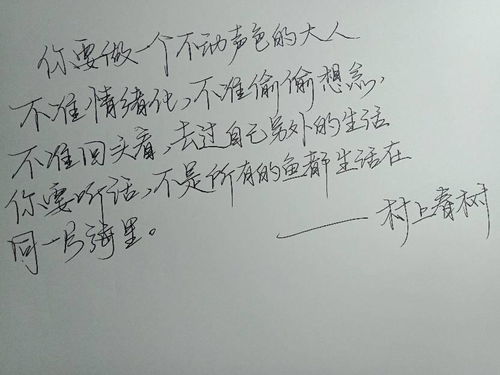 你要做一个不动声色的大人
不准情绪化,不准偷偷想念,
不准回头看,去过自己另外的生活
你要听话,不是所有的鱼都生活在
同一片海里。
——村上春树